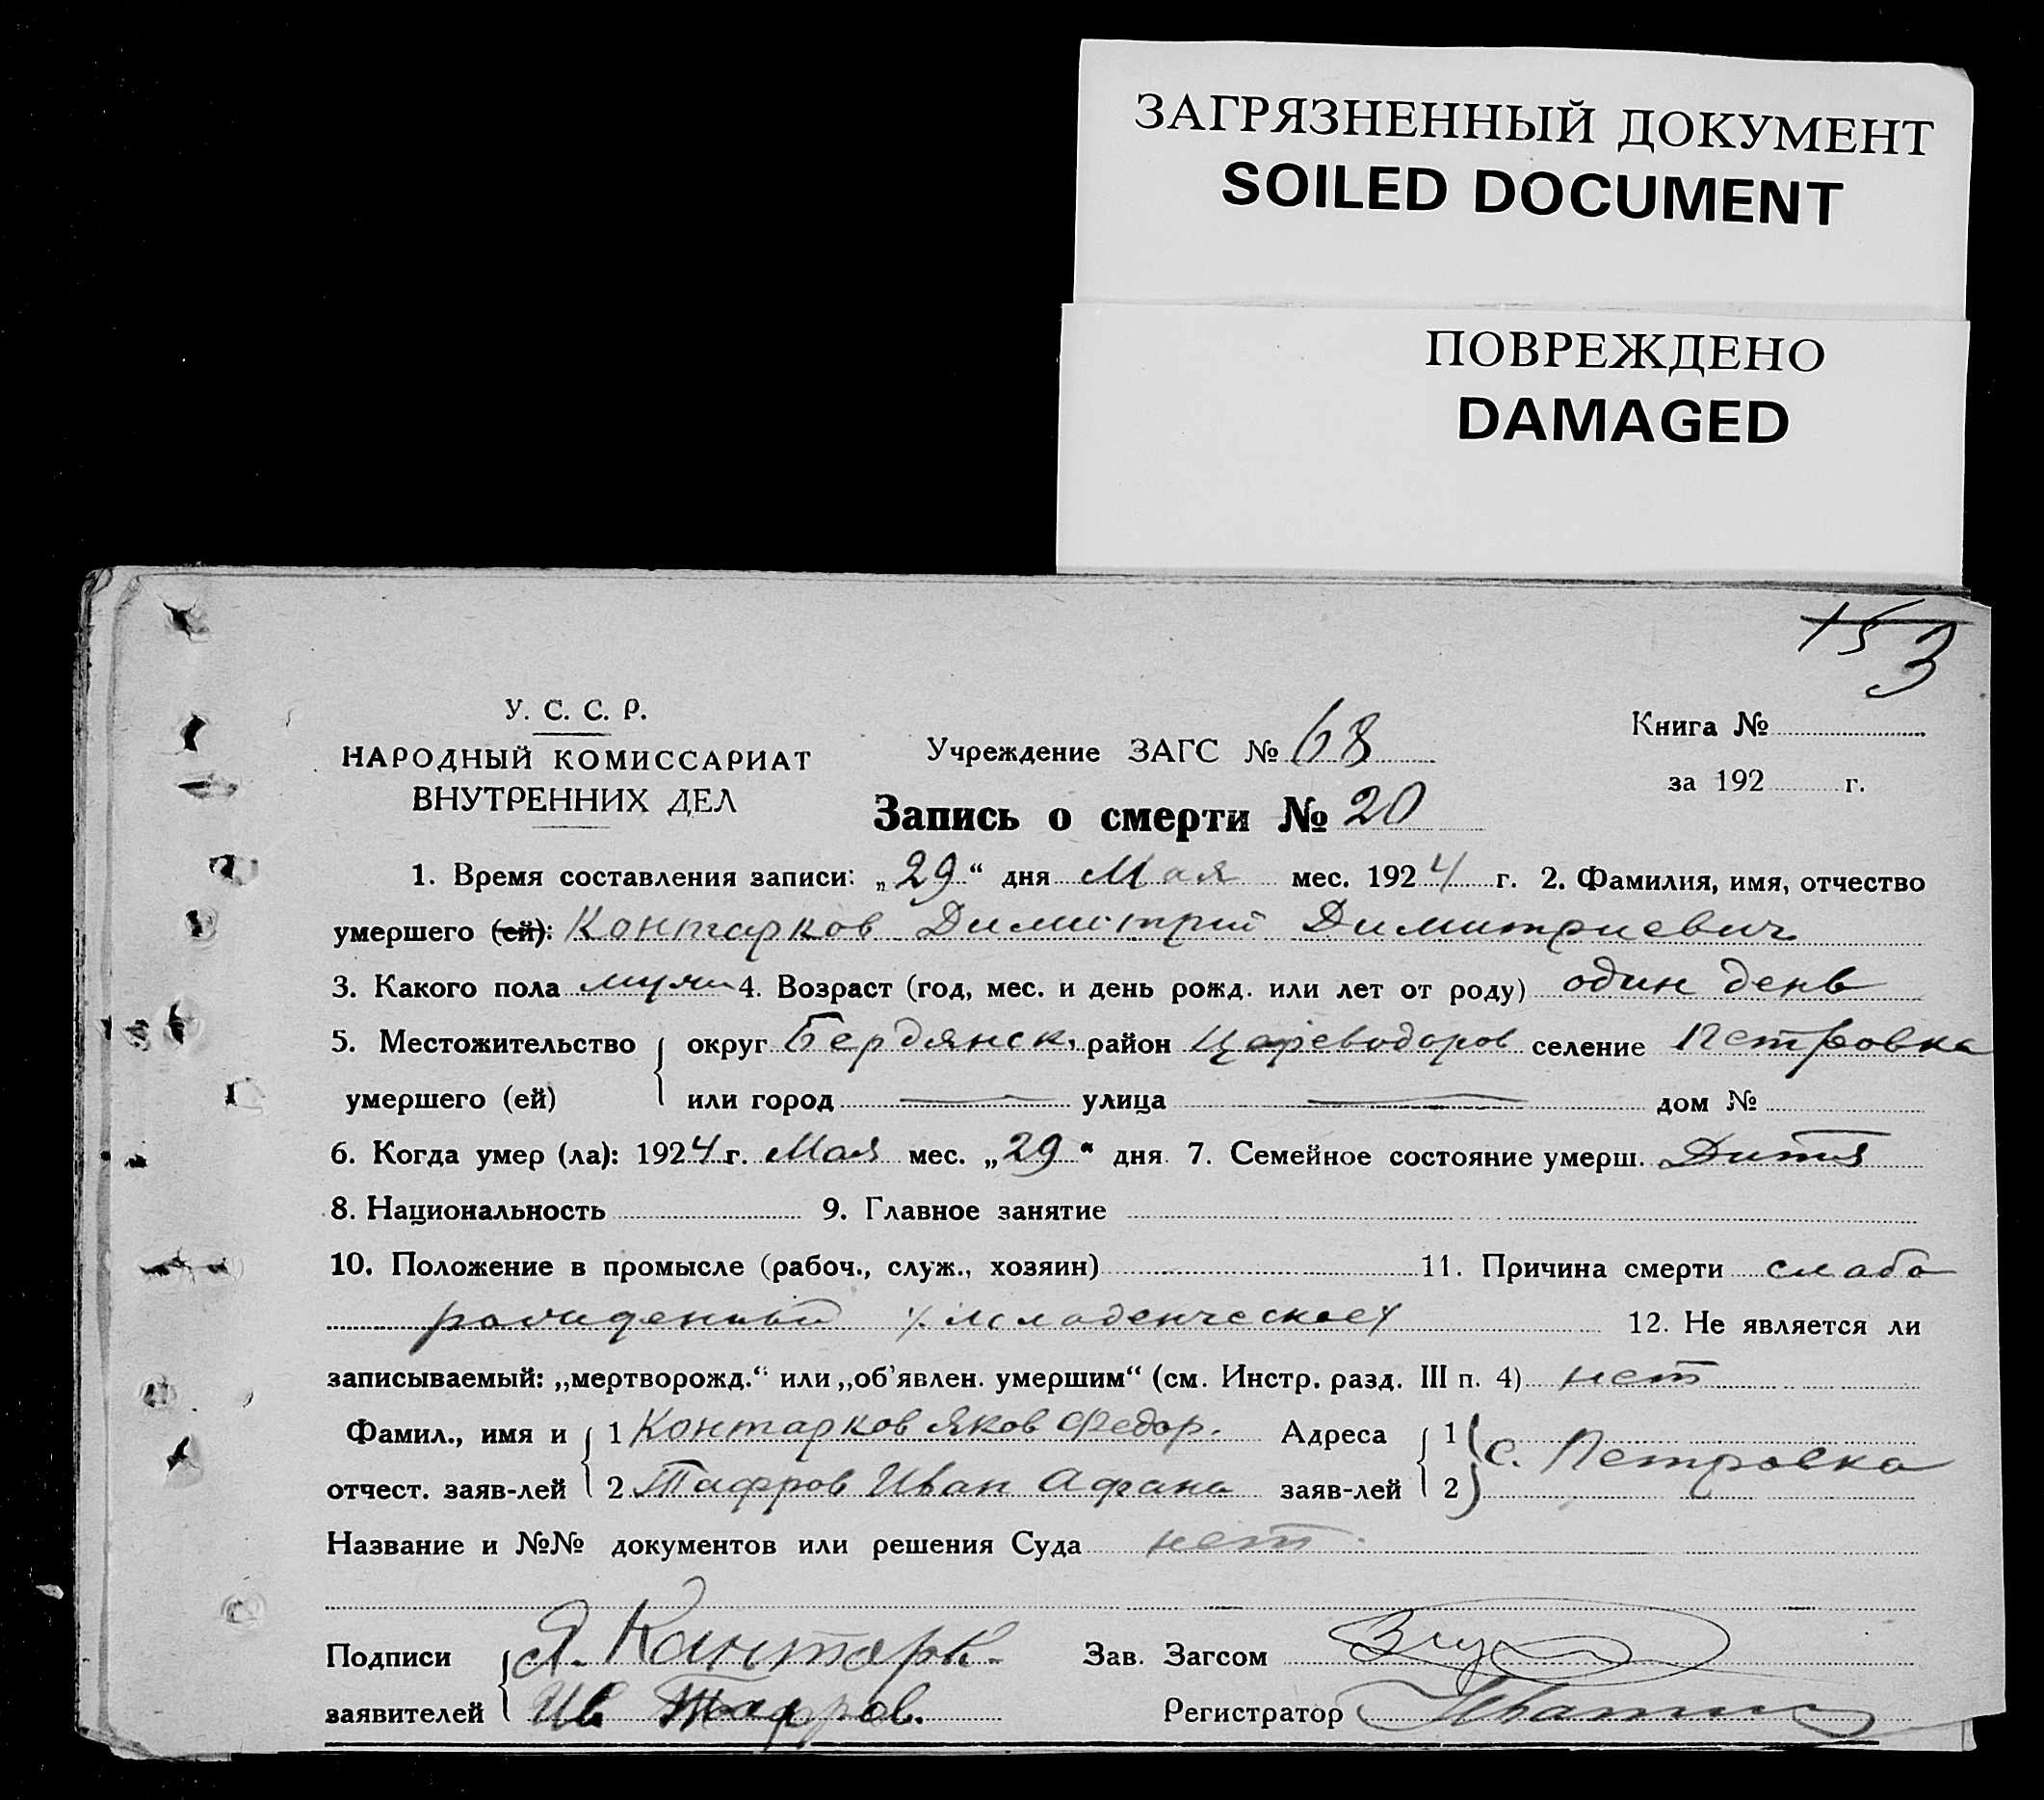 ЗАГРЯЗНЕННЫЙ ДОКУМЕНТ
SOILED DOCUMENT
ПОВРЕЖДЕНО
DAMAGED
15 3
У. С. С. Р.
НАРОДНЫЙ КОМИССАРИАТ
ВНУТРЕННИХ ДЕЛ
Учреждение ЗАГС № 68
Книга №
за 192 г.
Запись о смерти № 20
1. Время составления записи: „29“ дня Мая мес. 1924 г. 2. Фамилия, имя, отчество
умершего (ей): Контарков Димитрий Димитриевич
3. Какого пола муж 4. Возраст (год, мес. и день рожд. или лет от роду) один день
5. Местожительство округ Бердянск. район Цареводаров селение Петровка
умершего (ей) или город — улица — дом №
6. Когда умер (ла): 1924 г. Мая мес. „29“ дня 7. Семейное состояние умерш. Дитя
8. Национальность 9. Главное занятие
10. Положение в промысле (рабоч., служ., хозяин) 11. Причина смерти слабо
рожденный младенческая 12. Не является ли
записываемый: „мертворожд.“ или „об’явлен. умершим“ (см. Инстр. разд. III п. 4) нет
Фамил., имя и 1 Контарков Яков Федор. Адреса 1 с. Петровка
отчест. заяв-лей 2 Тафров Иван Афана заяв-лей 2
Название и №№ документов или решения Суда нет.
Подписи Я. Кантарк. Зав. Загсом
заявителей Ив Тафров. Регистратор